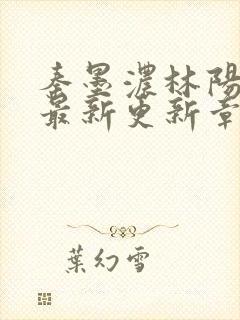 秦墨濃林陽
最新更新章
葉幻雪